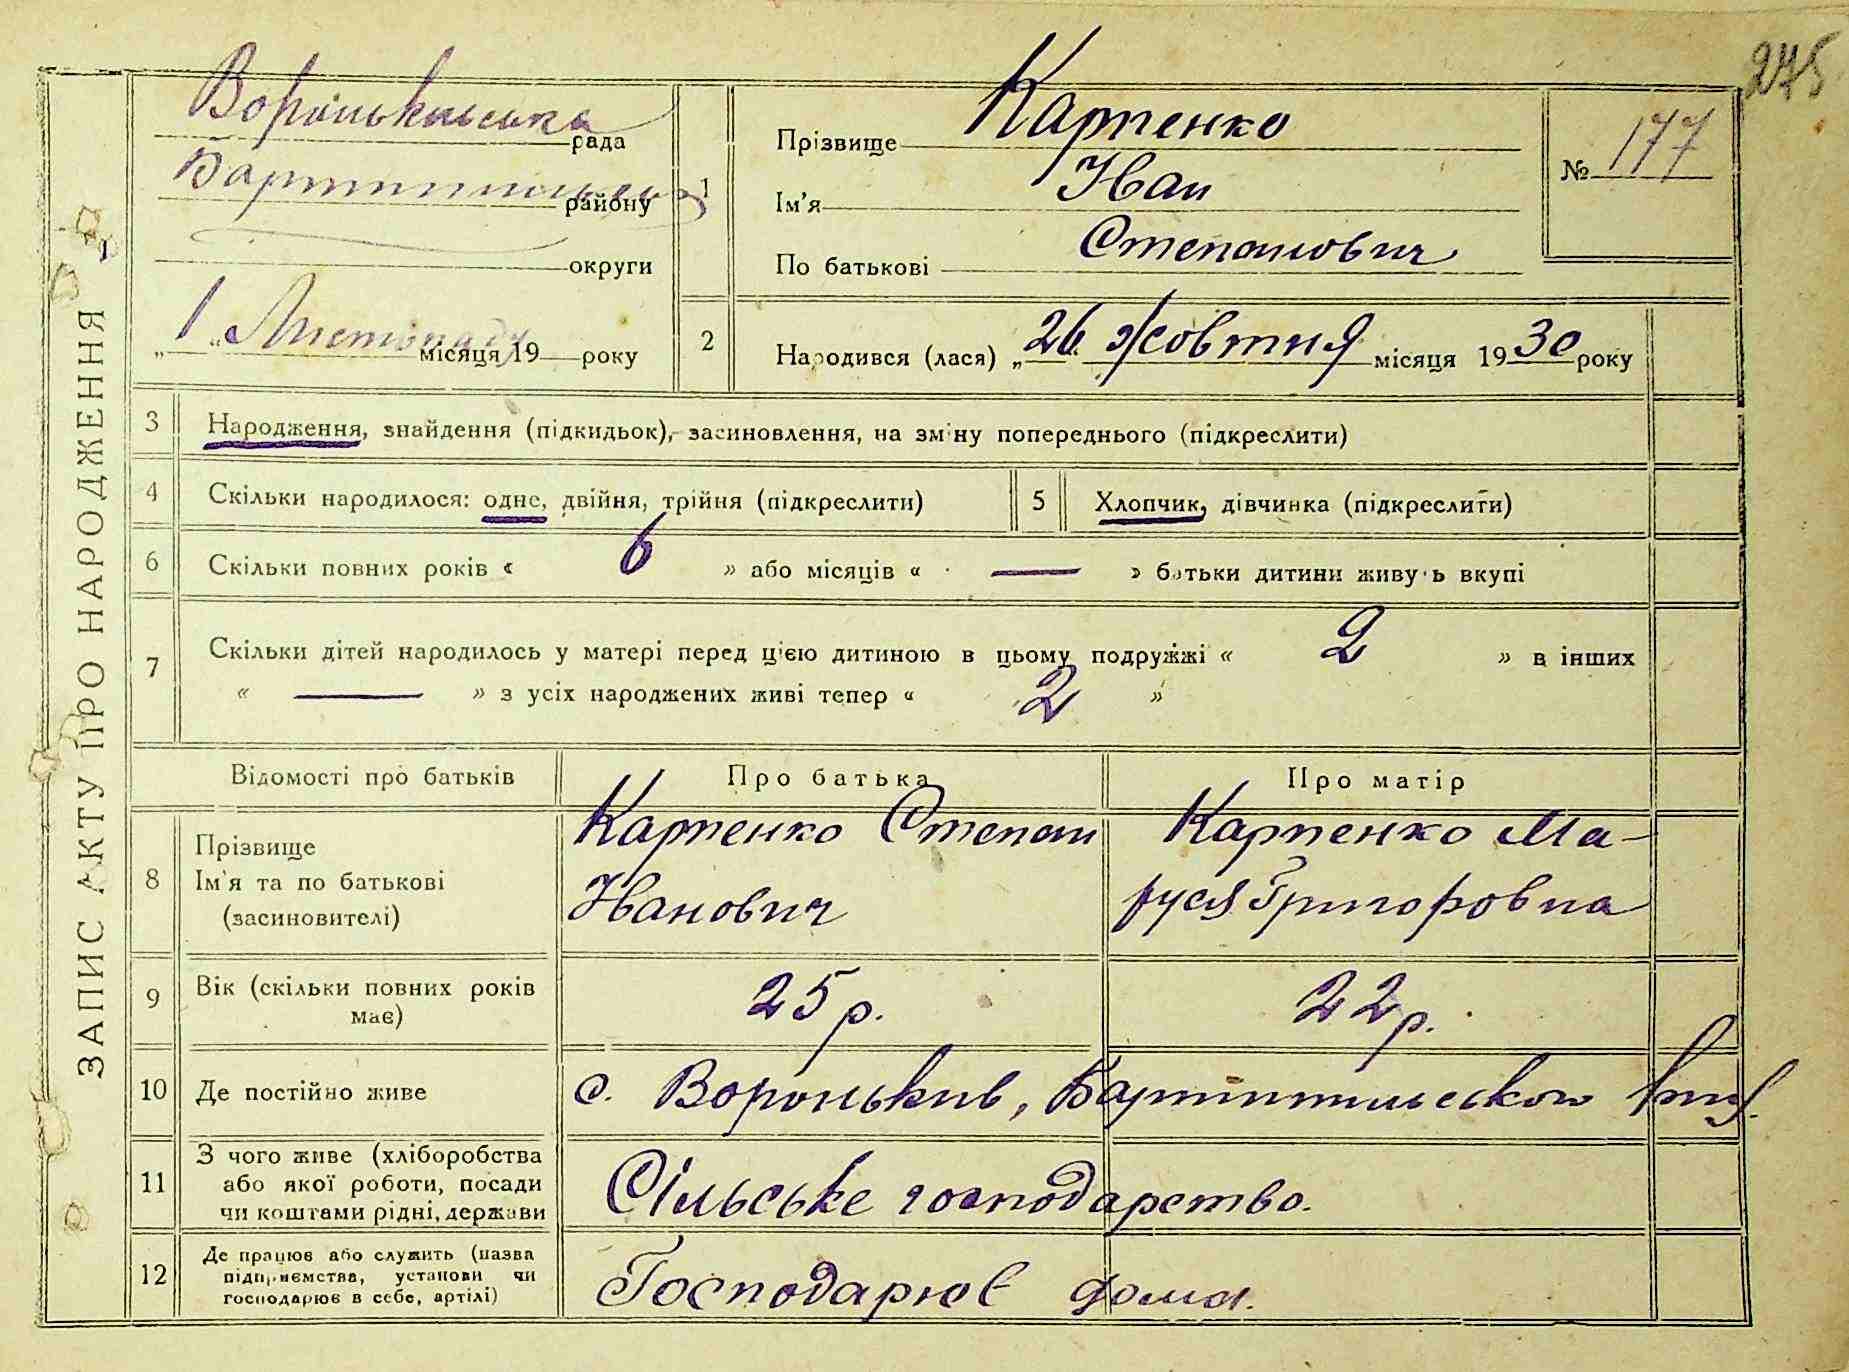 275
Вороньківська рада
району
округи
„1" Листопада місяця 19 року
ЗАПИС АКТУ ПРО НАРОДЖЕННЯ
1
Прізвище Карпенко
Ім'я Іван
По батькові Степанович
№ 177
2
Народився (лася) „26" жовтня місяця 1930 року
3 Народження, знайдення (підкидьок), засиновлення, на зміну попереднього (підкреслити)
4 Скільки народилося: одне, двійня, трійня (підкреслити)
5 Хлопчик, дівчинка (підкреслити)
6 Скільки повних років « 6 » або місяців « — » батьки дитини живуть вкупі
7 Скільки дітей народилось у матері перед цією дитиною в цьому подружжі « 2 » в інших
« — » з усіх народжених живі тепер « 2 »
Відомості про батьків Про батька Про матір
8 Прізвище
Ім'я та по батькові
(засиновителі)
Карпенко Степан
Іванович
Карпенко Ма-
руся Григоровна
9 Вік (скільки повних років
має)
25 р.
22 р.
10 Де постійно живе
с. Вороньків, Баришпільського
11 З чого живе (хліборобства
або якої роботи, посади
чи коштами рідні, держави
Сільське господарство.
12 Де працює або служить (назва
підприємства, установи чи
господарює в себе, артілі)
Господарює дома.